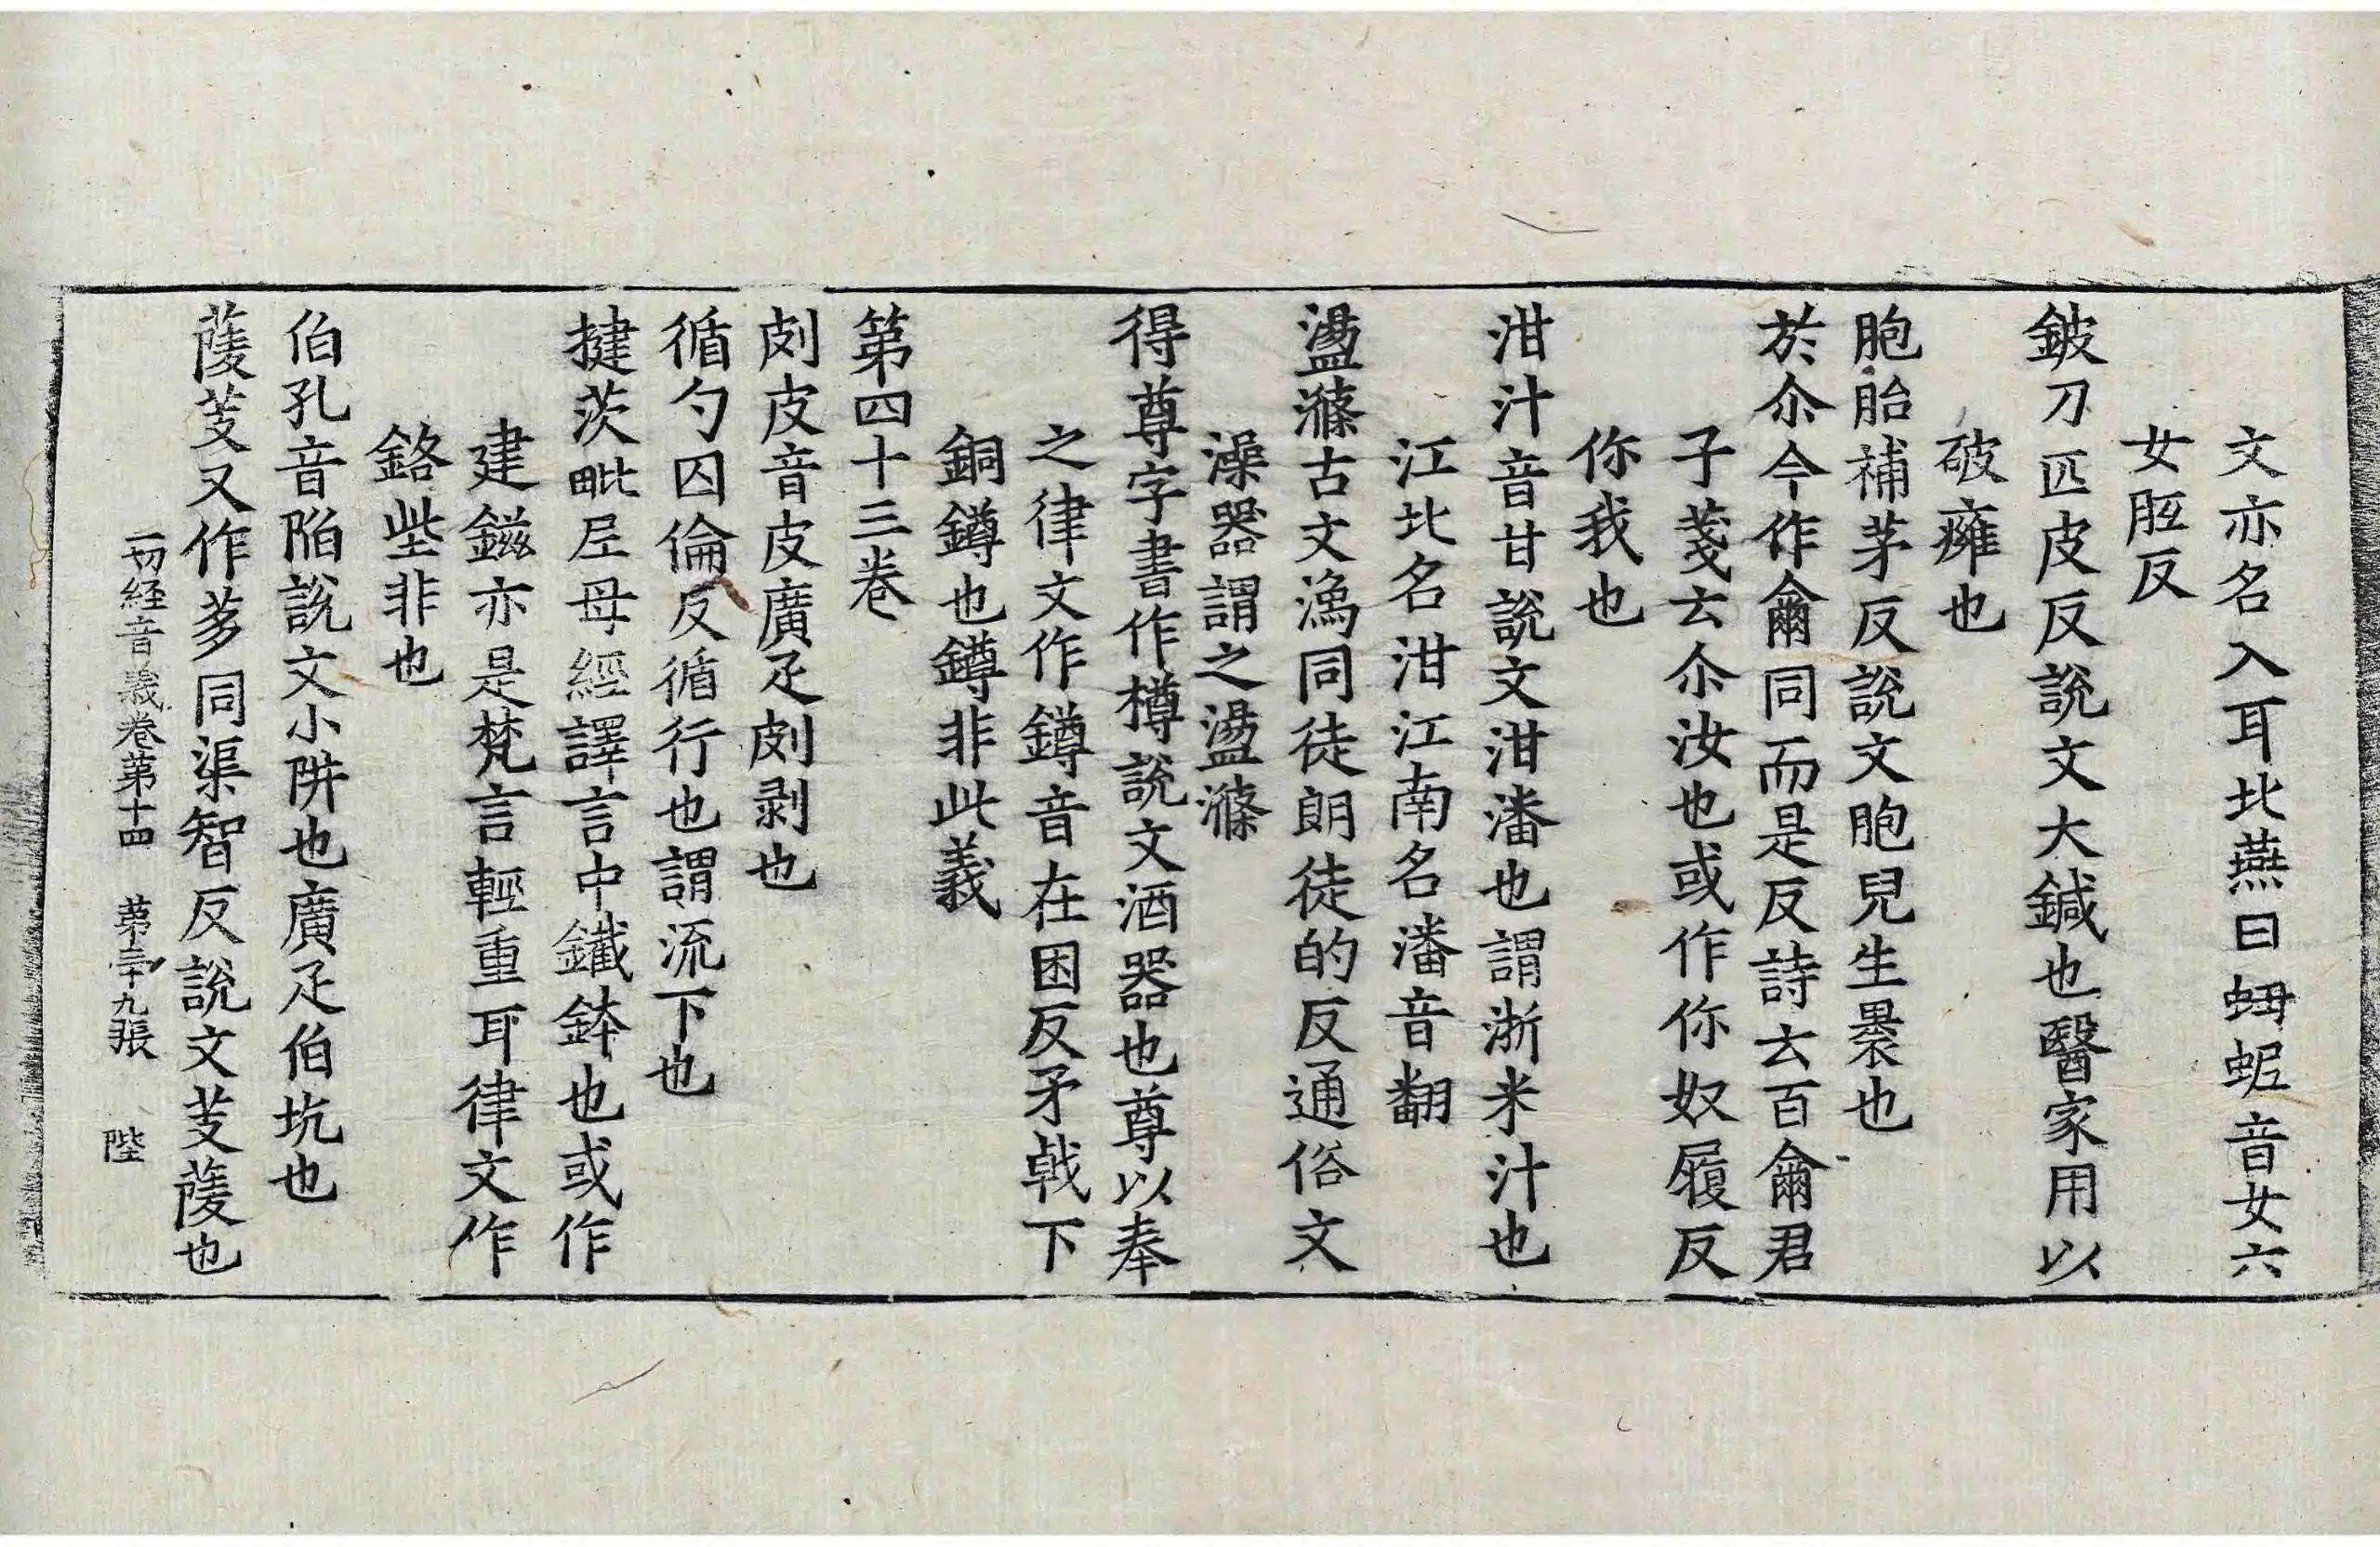 文亦名入耳北燕曰蚰蚭音女六
女胝反
鈹刀匹皮反說文大鍼也醫家用以
破癰也
胞胎補茅反說文胞兒生褁也
於尒今作龠同而是反詩云百龠君
子箋云尒汝也或作你奴履反
你我也
泔汁音甘說文泔潘也謂淅米汁也
江北名泔江南名潘音翻
盪滌古文潒同徒朗徒的反通俗文
澡器謂之盪滌
得尊字書作樽說文酒器也尊以奉
之律文作鐏音在困反矛戟下
銅鐏也鐏非此義
第四十三卷
㓟皮音皮廣疋㓟剥也
循勺囚倫反循行也謂流下也
揵茨毗尼母經譯言中鐵鉢也或作
建鎡亦是梵言輕重耳律文作
鉻㘹非也
伯孔音陷說文小阱也廣疋伯坑也
䕯芰又作茤同渠智反說文芰䕯也
一切経音義卷第十四 第三十九張 陛